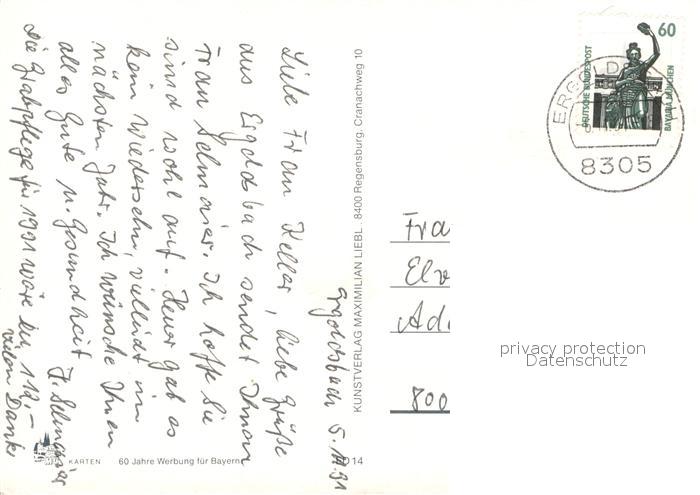 Ergoldsbach 5.11.91
Liebe Frau Keller, liebe Grüße
aus Ergoldsbach sendet Ihnen
Frau Selmaier. Ich hoffe Sie
sind wohl auf. Heuer gab es
kein Wiedersehn, vielleicht im
nächsten Jahr. Ich wünsche Ihnen
alles Gute u. Gesundheit
die Grabpflege für 1991 wäre DM 112,–
vielen Dank
KUNSTVERLAG MAXIMILIAN LIEBL · 8400 Regensburg, Cranachweg 10
KARTEN 60 Jahre Werbung für Bayern
14
60
DEUTSCHE BUNDESPOST
BAVARIA MÜNCHEN
8305
Fra
Elv
Ad
800
privacy protection
Datenschutz